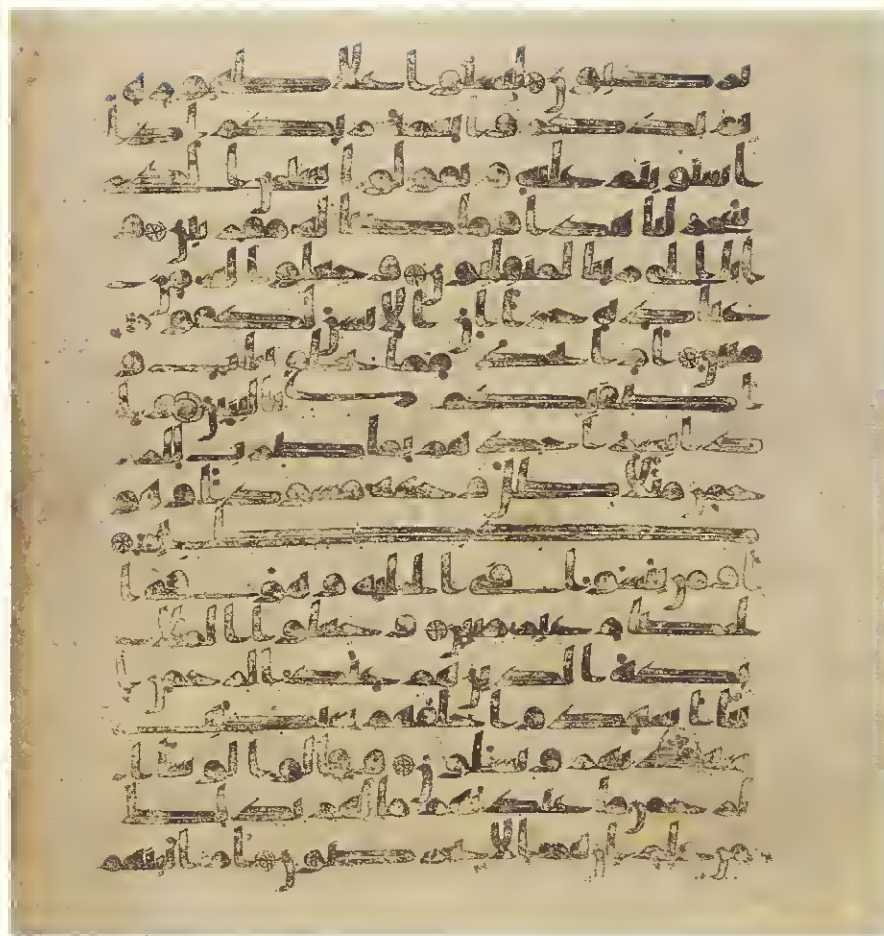 تركبون لتستوا على ظهوره ثم
تذكروا نعمة ربكم اذا
استويتم عليه وتقولوا سبحن الذى
سخر لنا هذا وما كنا له مقرنين و
انا الى ربنا لمنقلبون وجعلوا له من
عباده جزا ان الانسن لكفور
مبين ام اتخذ مما يخلق بنات و
اصفيكم بالبنين واذا
بشر احدهم بما ضرب للر
حمن مثلا ظل وجهه مسودا وهو
كظيم
اومن ينشوا فى الحلية وهو فى ا
لخصام غير مبين وجعلوا الملـ
ـئكة الذين هم عبد الرحمن ا
نثا اشهدوا خلقهم ستكتب
شهدتهم ويسلون وقالوا لو شا
الرحمن ما عبدنهم ما لهم بذلك
من علم ان هم الا يخرصون ام اتينهم